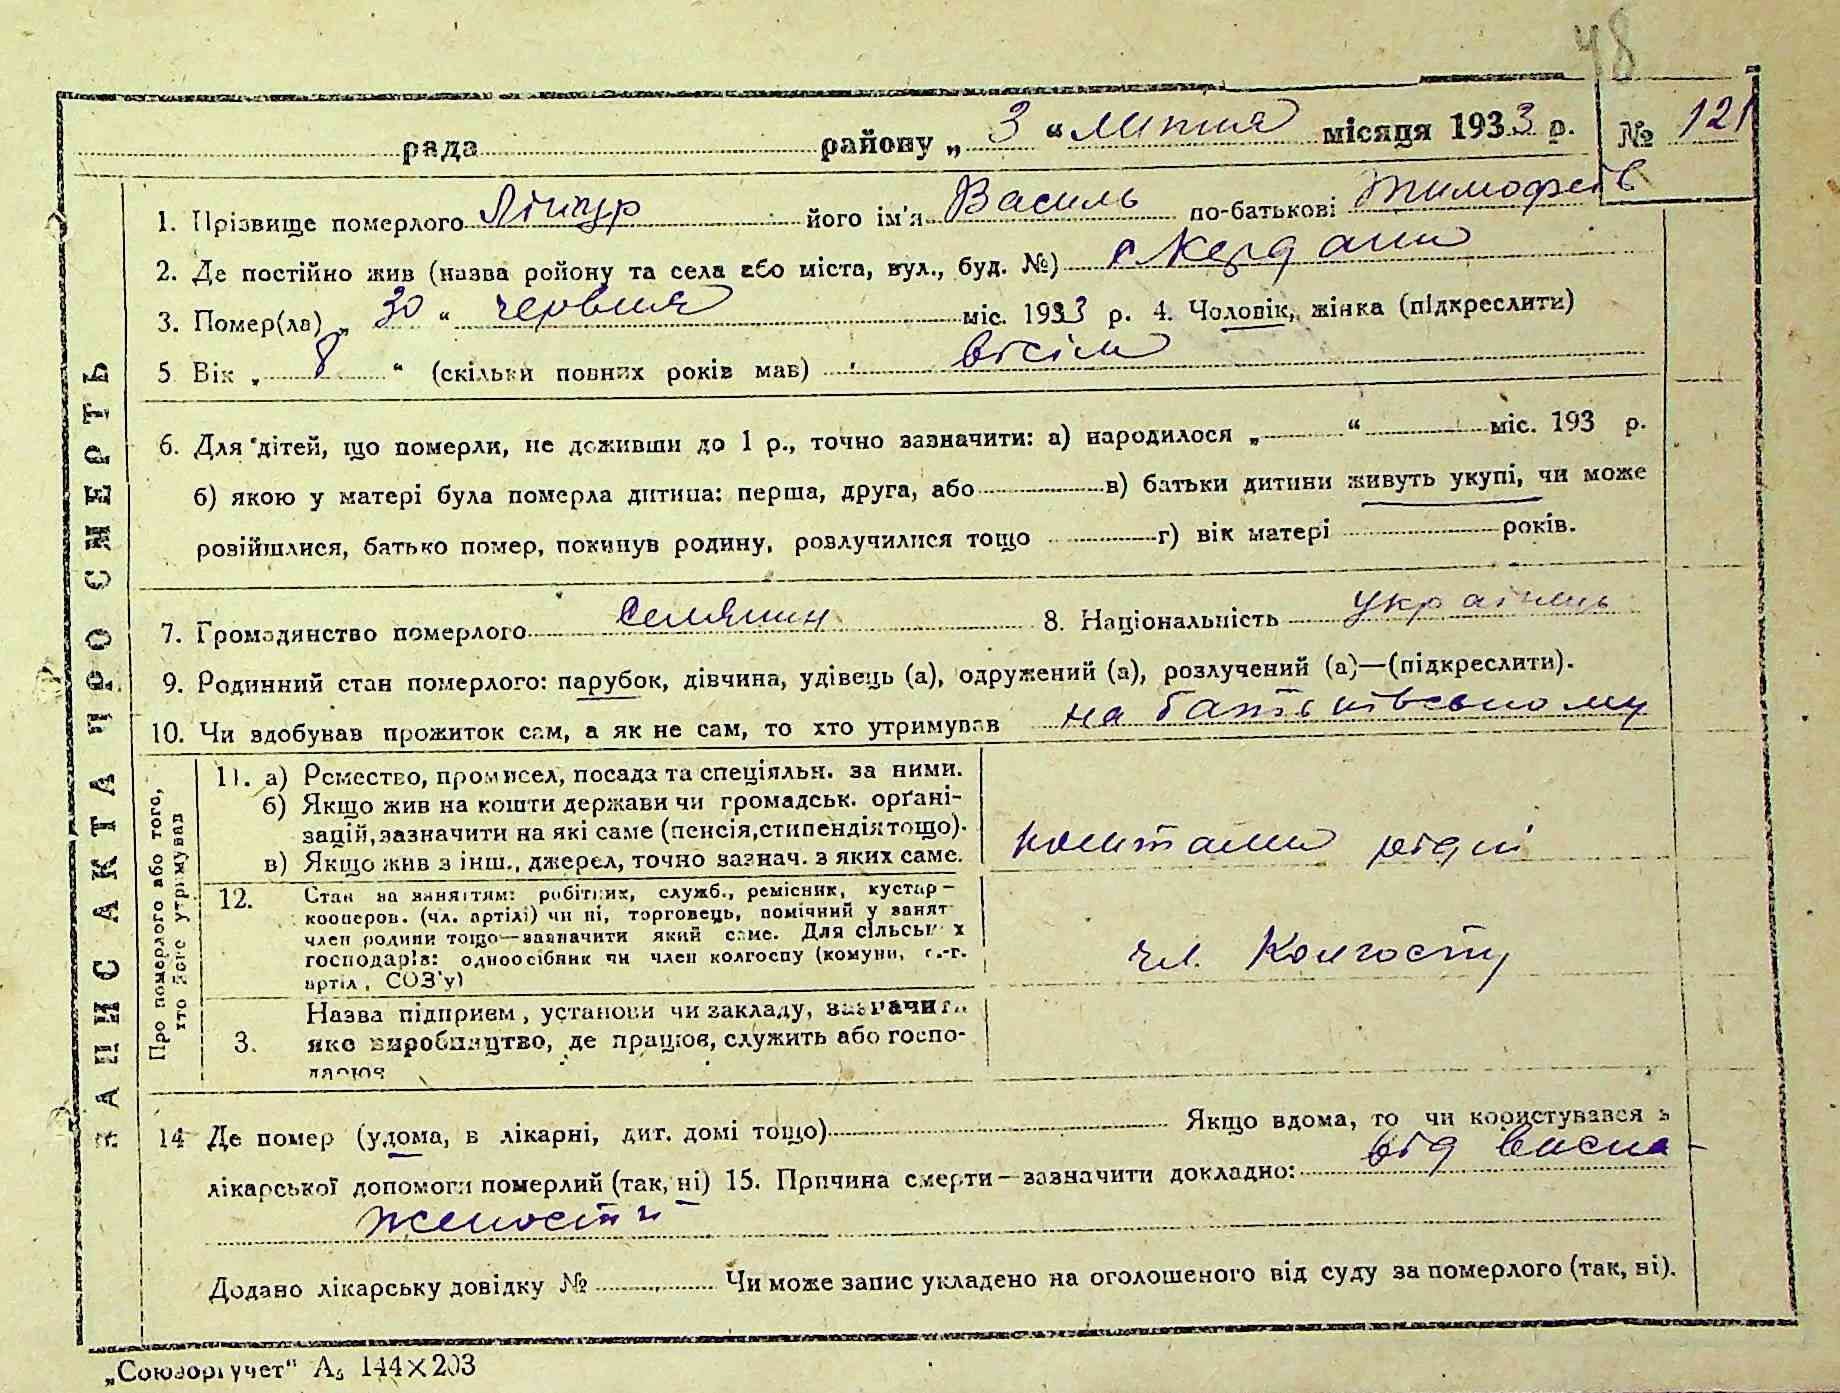 48
рада района „ 3 “ липня місяця 1933 р. № 121
ЗАПИС АКТА ПРО СМЕРТЬ
1. Прізвище померлого Ліпур його ім'я Василь по-батькові Тимофеїв
2. Де постійно жив (назва ройону та села або міста, вул., буд. №) с Кердани
3. Помер(ла) „ 30 “ червня міс. 1933 р. 4. Чоловік, жінка (підкреслити)
5 Вік „ 8 “ (скільки повних років мав) вісім
6. Для дітей, що померли, не доживши до 1 р., точно зазначити: а) народилося „ “ міс. 193 р.
б) якою у матері була померла дитина: перша, друга, або в) батьки дитини живуть укупі, чи може
розійшлися, батько помер, покинув родину, розлучилися тощо г) вік матері років.
7. Громадянство померлого селянин 8. Національність українець
9. Родинний стан померлого: парубок, дівчина, удівець (а), одружений (а), розлучений (а)—(підкреслити).
10. Чи здобував прожиток сам, а як не сам, то хто утримував на батьківському
Про померлого або того,
хто його утримував
11. а) Ремество, промисел, посада та спеціяльн. за ними.
б) Якщо жив на кошти держави чи громадськ. орґані-
зацій, зазначити на які саме (пенсія, стипендія тощо).
в) Якщо жив з інш., джерел, точно зазнач. з яких саме.
коштами рідні
12. Стан за заняттям: робітник, служб., ремісник, кустар—
кооперов. (чл. артілі) чи ні, торговець, помічний у занят
член родини тощо—зазначити який саме. Для сільськ х
господарів: одноосібник чи член колгоспу (комуни, с.-г.
артіл, СОЗ'у)
чл. Колгоспу
3. Назва підприєм, установи чи закладу, зазначити
яке виробництво, де працює, служить або госпо-
дарює
14 Де помер (удома, в лікарні, дит. домі тощо) Якщо вдома, то чи користувався з
лікарської допомоги померлий (так, ні) 15. Причина смерти—зазначити докладно: від висна-
жености
Додано лікарську довідку № Чи може запис укладено на оголошеного від суду за померлого (так, ні).
„Союзоргучет“ А₅ 144×203